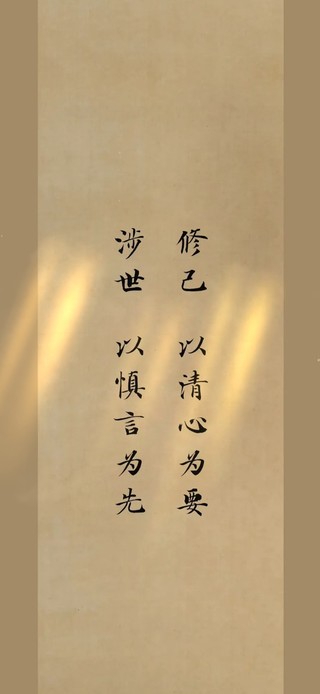 修己 以清心为要
涉世 以慎言为先